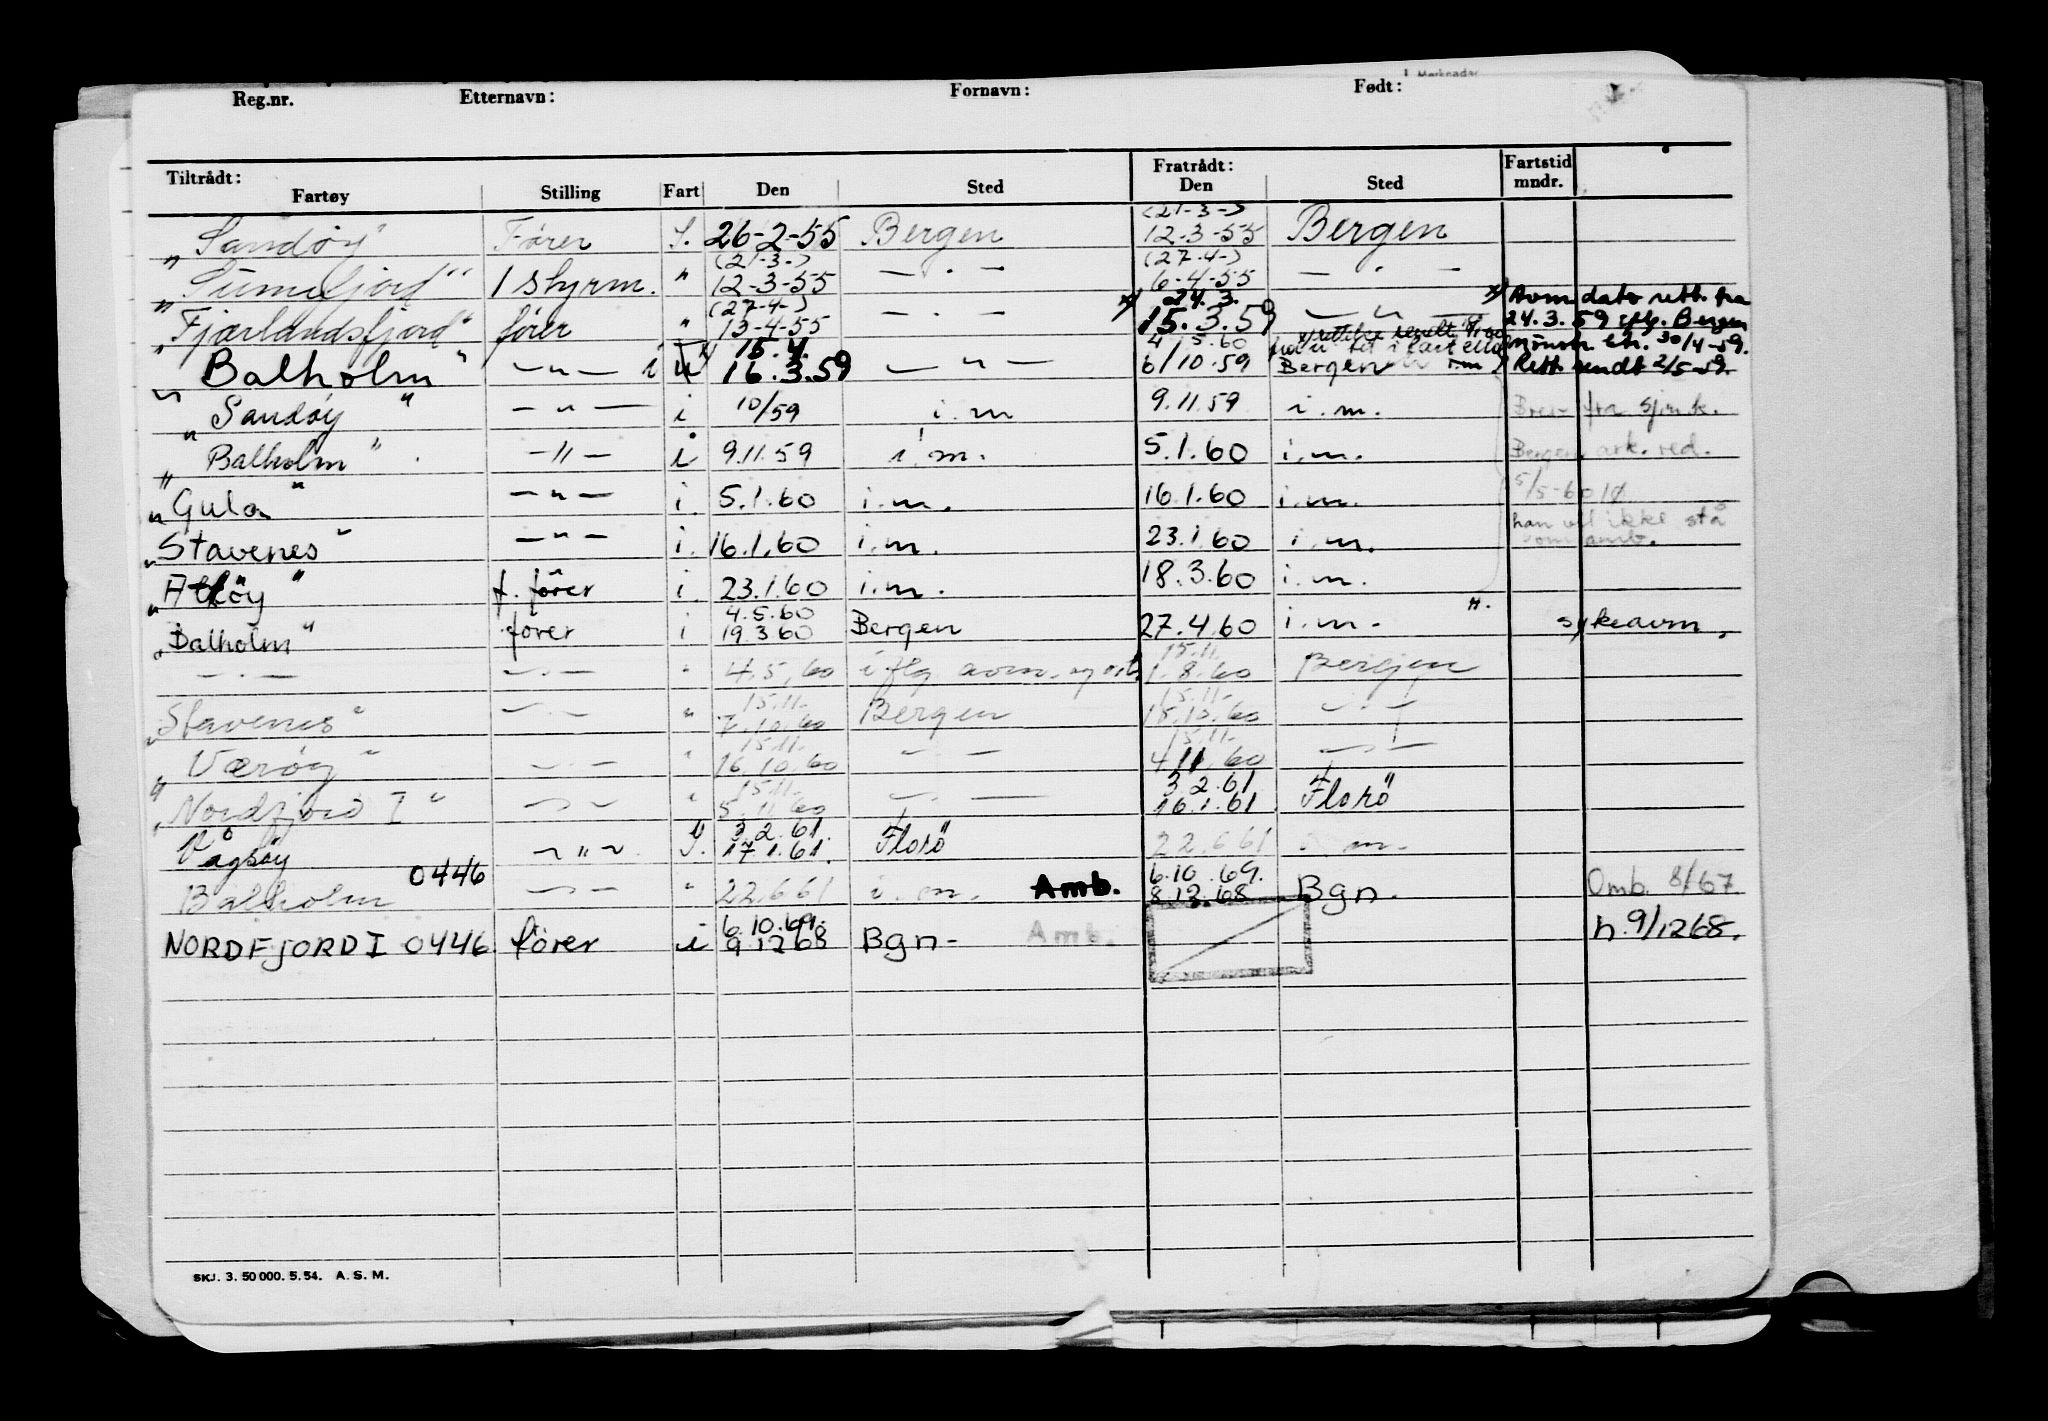 Merknader
Reg.nr. Etternavn: Fornavn: Født:
Tiltrådt: Fratrådt: Fartstid mndr.
Fartøy Stilling Fart Den Sted Den Sted
(21-3-)
"Sandøy" Fører S. 26-2-55 Bergen 12-3-55 Bergen
(21-3-) (27-4-)
1 styrm. " 12-3-55 — . — 6-4-55 — . —
(27-4-) 24.3. x) Avm dato rett. fra
"Fjærlandsfjord" fører " 13-4-55 — . — x) 15.3.59 — " — 24.3.59 iflg. Bergen
15.4. 4/5.60 mønstr. 30/4-59.
"Balholm" — " — i 16.3.59 — " — 6/10.59 Bergen Rett sendt 2/5-59.
"Sandøy" — " — i 10/59 i.m 9.11.59 i.m. Brev fra Sjm.k.
"Balholm" — " — i 9.11.59 i.m. 5.1.60 i.m. Bergen ark. red.
"Gula" — " — i. 5.1.60 i.m. 16.1.60 i.m. 5/5-60
"Stavenes" — " — i. 16.1.60 i.m. 23.1.60 i.m. han vil ikke stå som amb.
f. fører i. 23.1.60 i.m. 18.3.60 i.m.
4.5.60
"Balholm" fører i 19.3.60 Bergen 27.4.60 i.m. sykeavm.
15.11.
— . — — . — " 4.5.60 iflg avm. 1.8.60 Bergen
15.11. 15.11.
"Stavenes" — . — " 7.10.60 Bergen 15.10.60 — . —
15.11. 15.11.
"Værøy" — . — " 16.10.60 — . — 4.11.60 — . —
15.11. 3.2.61
"Nordfjord I" — . — " 5.11.60 — . — 16.1.61 Florö
3.2.61.
Vågsøy — " — S. 17.1.61. Florö 22.6.61 i.m.
0446 6.10.69.
Balholm — . — " 22.6.61 i.m. Amb. 8.12.68 Bgn. Omb. 8/67
6.10.69.
NORDFJORD I 0446 fører i 9.12.68 Bgn- Amb. n. 9/1268.
SKJ. 3. 50 000. 5. 54. A. S. M.